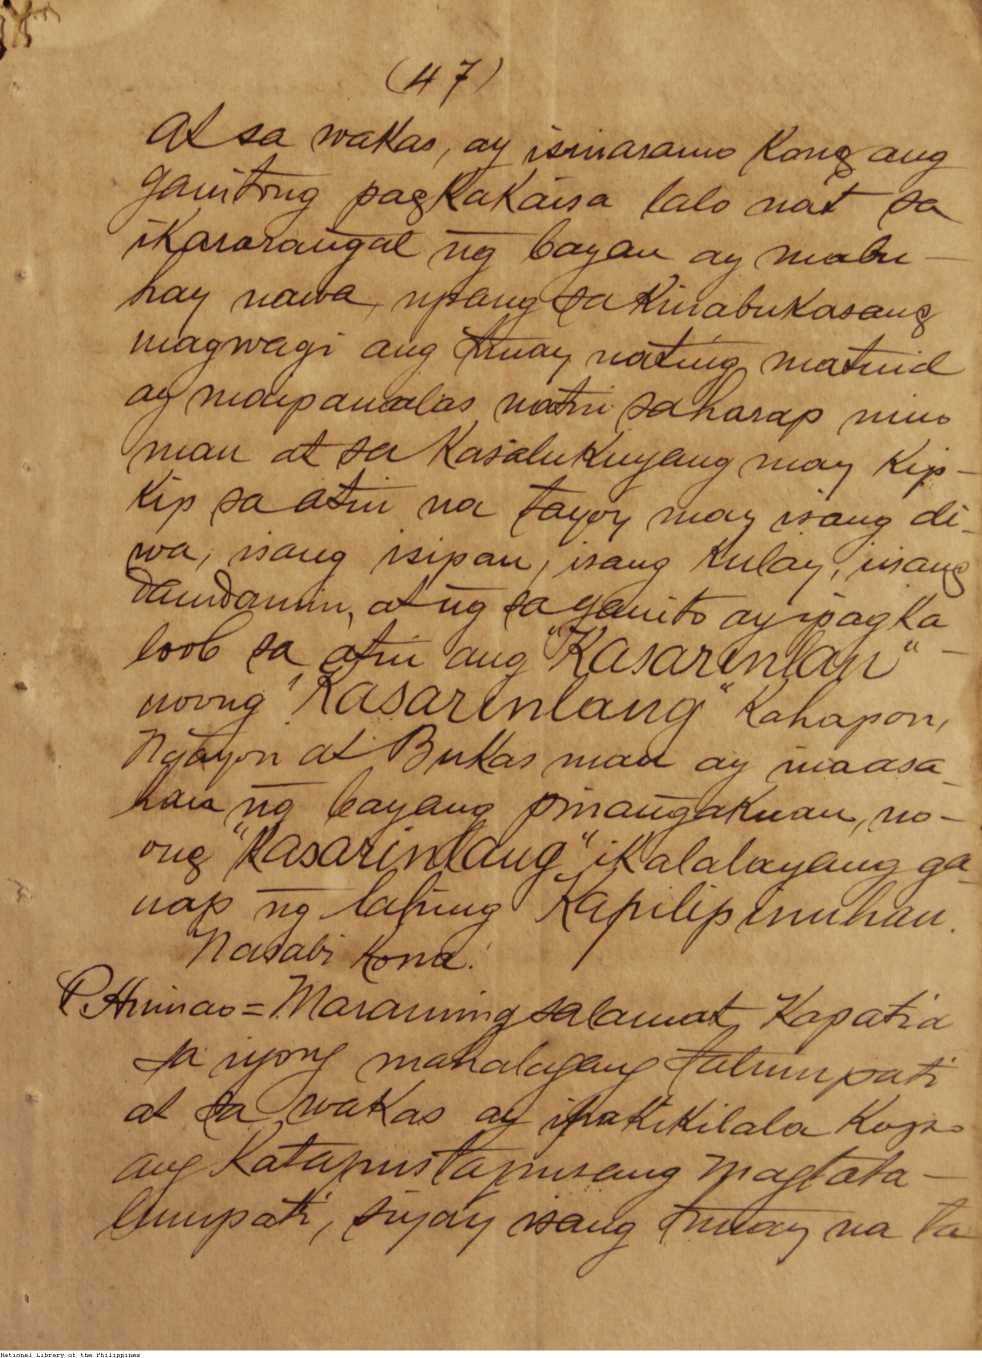 (47)
At sa wakas, ay isinasamo kong ang
ganitong pagkakaisa lalo nat sa
ikararangal ng bayan ay mabu-
hay nawa, upang sa kinabukasang
magwagi ang tunay nating matuid
ay maipamalas natin sa harap nino
man at sa kasalukuyang may kip-
kip sa atin na tayoy may isang di-
wa, isang isipan, isang kulay, isang
damdamin, at ng sa ganito ay ipagka
loob sa atin ang "Kasarinlan" -
noong "Kasarinlang" Kahapon,
Ngayon at Bukas man ay inaasa-
han ng bayang pinangakuan, no-
ong "Kasarinlang" ikalalayang ga-
nap ng lahing Kapilipinuhan.
Nasabi kona.
P. Himao = Maraming salamat, Kapatid
sa iyong mahalagang talumpati
at sa wakas ay ipakikilala ko
ang katapustapusang magtata-
lumpati, siyay isang tunay na ta
National Library of the Philippines